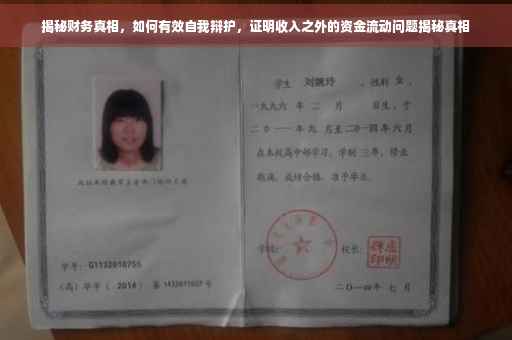 揭秘财务真相，如何有效自我辩护，证明收入之外的资金流动问题揭秘真相
学生 刘婉玲 ，性别 女 ，
一九九六 年 二 月 日生，于
二〇一一 年 九 月至 二〇一四 年 六 月
在本校高中部学习，学制 三 年，修业
期满，成绩合格，准予毕业。
学号：G1132010755
（高）毕字（ 2014 ）第 1432011027 号
学校：
校长：
二〇一四年 七 月